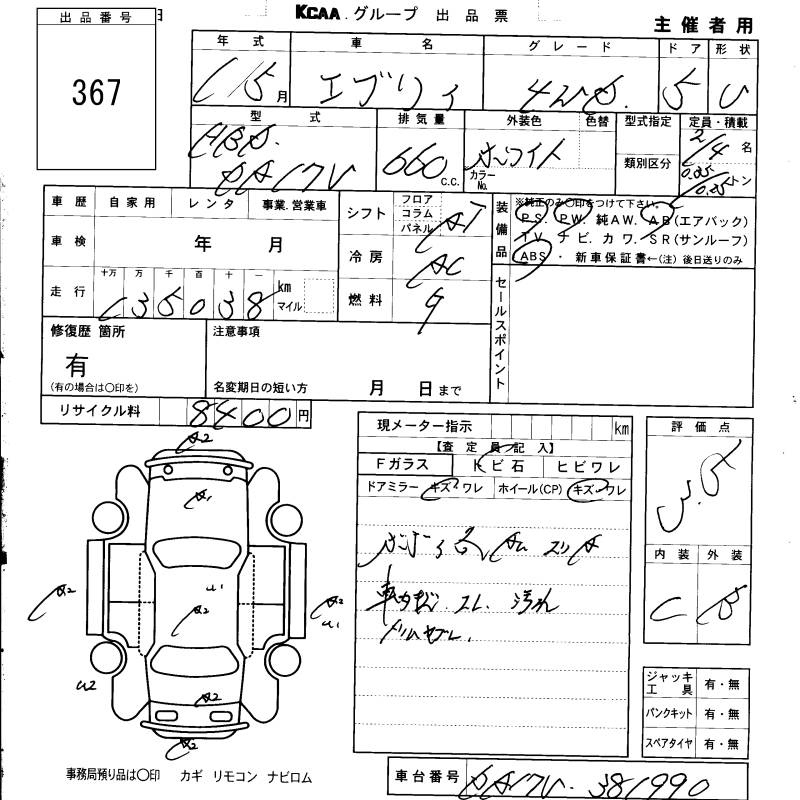 KCAA グループ 出品票
主催者用
出品番号
367
年式 車名 グレード ドア 形状
月 エブリィ 4WD. 5 V
型式 排気量 外装色 色替 型式指定 定員・積載
HBD. DA17V 660 C.C. ホワイト カラーNo. 類別区分 2/4 名
トン
車歴 自家用 レンタ 事業.営業車
車検 年 月
走行 十万 万 千 百 十 一 km マイル
135038
シフト フロア コラム パネル AT
冷房 AC
燃料 G
装備品 ※純正のみ○印をつけて下さい。
PS. PW. 純AW. AB(エアバック)
TV ナビ. カワ. SR(サンルーフ)
ABS ・ 新車保証書←(注) 後日送りのみ
セールスポイント
修復歴 箇所
有
(有の場合は○印を)
注意事項
名変期日の短い方 月 日まで
リサイクル料 8400円
現メーター指示 km
【査定員記入】
Fガラス トビ石 ヒビワレ
ドアミラー キズ・ワレ ホイール(CP) キズ・ワレ
評価点
内装 外装
C B
A2
A1
A2
U1
A2
A2
U1
U2
A2
A2
スレ 汚れ
ジャッキ工具 有・無
パンクキット 有・無
スペアタイヤ 有・無
事務局預り品は○印 カギ リモコン ナビロム
車台番号 DA17V-381990